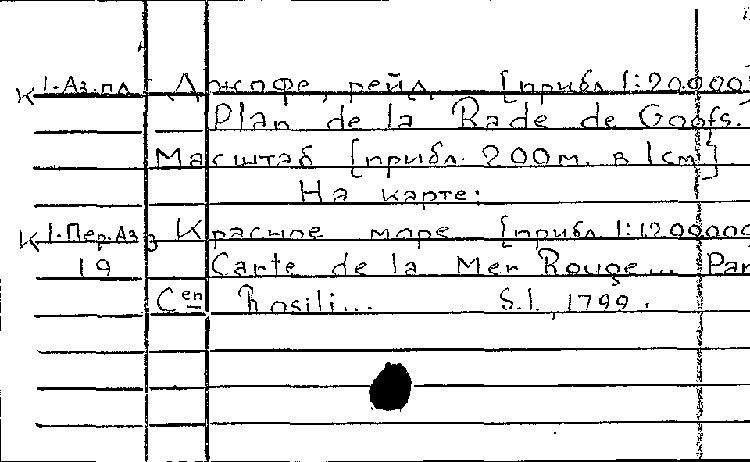 К 1-Аз.пл Джофе, рейд. [прибл 1:20000]
Plan de la Rade de Goofs.
Масштаб [прибл. 200м. в 1см]
На карте:
К 1-Пер.Аз 3 Красное море [прибл 1:1200000
19 Carte de la Mer Rouge... Par
Cen Rosili... S.l., 1799.